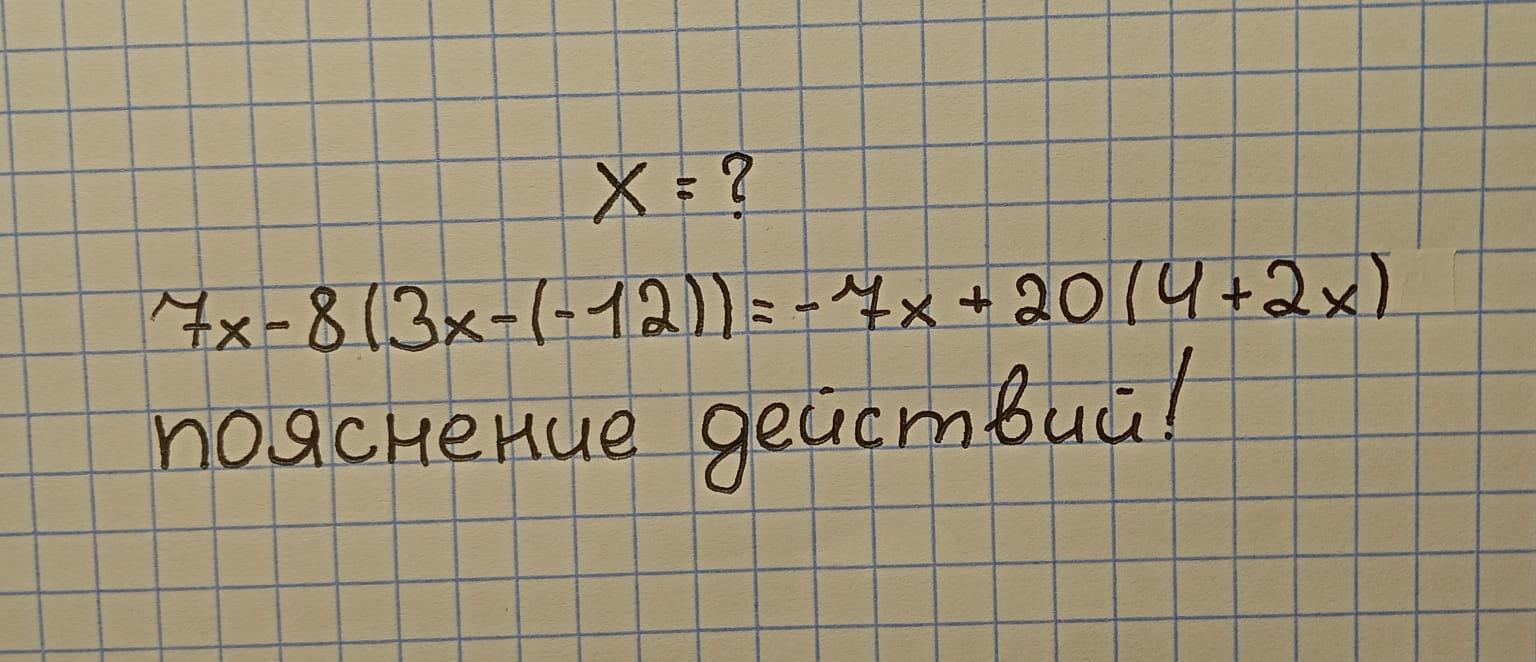 x = ?
7x - 8(3x - (-12)) = -7x + 20(4 + 2x)
пояснение действий!